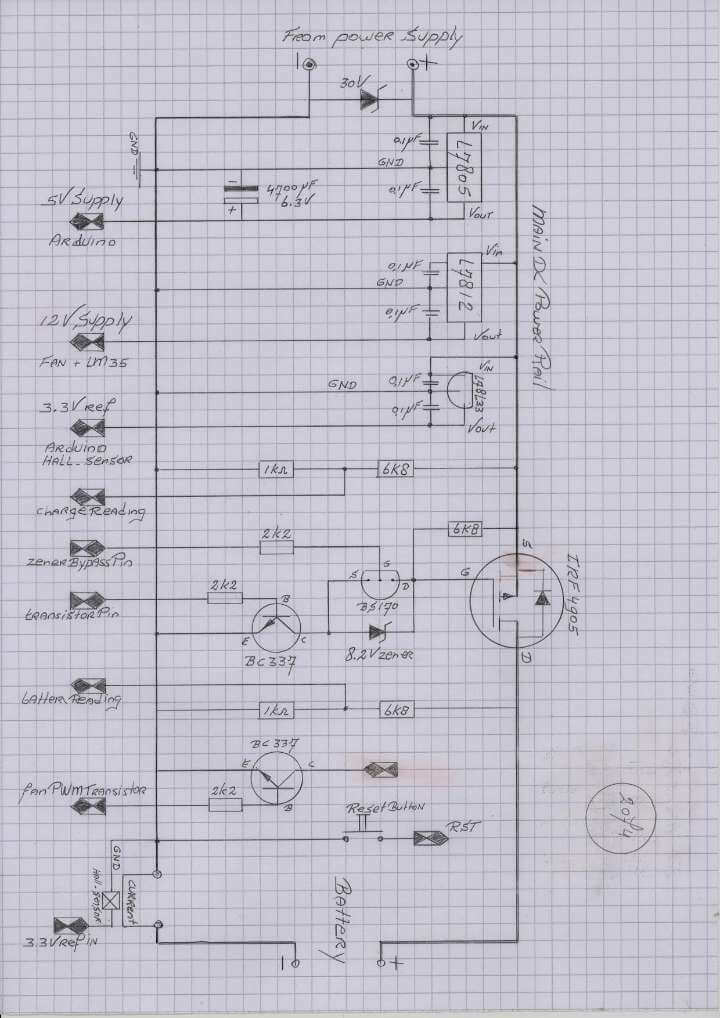 From power Supply
− +
30V
GND
VIN
0,1µF
L7805
GND
4700µF
6.3V
0,1µF
Vout
5V Supply
Arduino
MAIN DC Power Rail
Vin
0,1µF
L7812
GND
0,1µF
12V Supply
Vout
FAN + LM35
VIN
0,1µF
L78L33
GND
0,1µF
3.3V ref
Vout
Arduino
HALL_Sensor
1kΩ
6K8
chargeReading
6K8
2k2
zenerBypassPin
S
G
D
BS170
G
S
D
IRF4905
2k2
transistorPin
B
E
C
BC337
8.2V zener
batteryReading
1kΩ
6K8
BC337
E
C
B
fanPWMTransistor
2k2
ResetButton
RST
2014
GND
Hall-Sensor
current
3.3VrefPin
BATTERY
− +